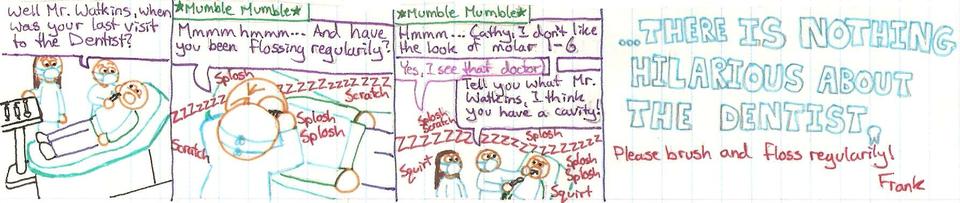 Well Mr. Watkins, when
was your last visit
to the Dentist?
*Mumble Mumble*
Mmmm hmmm... And have
you been flossing regularily?
Splosh
ZZZZZZZ
ZZZZZZZZZZZZ
Scratch
Splosh
Splosh
Scratch
*Mumble Mumble*
Hmmm... Cathy, I don't like
the look of molar 1-6
Yes, I see that doctor!
Tell you what Mr.
Watkins, I think
you have a cavity!
Splosh
Scratch
Splosh
ZZZZZZZZZZZZZZZZZ
Squirt
Splosh
Splosh
Squirt
...THERE IS NOTHING
HILARIOUS ABOUT
THE DENTIST.
Please brush and floss regularily!
Frank